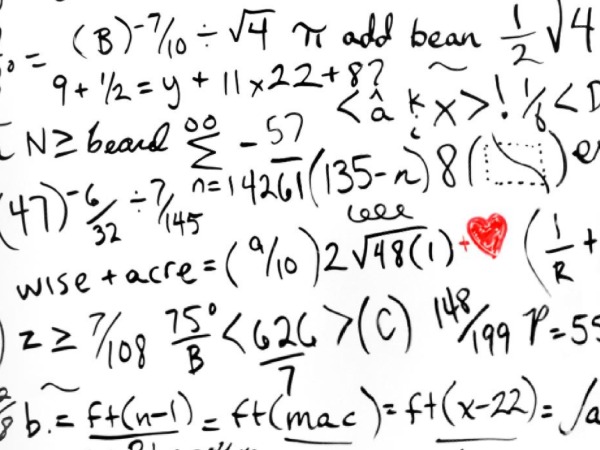 (B)^-7/10 ÷ √4 π add bean 1/2 √4
9 + 1/2 = y + 11 x 22 + 8?
< â k x > ! 1/6 < D
N ≥ beard ∞ Σ n=1 -57/4261 (135-n) 8
(47)^-6/32 ÷ 7/145
wise + acre = (9/10) 2 √48(1) + ❤ (1/R +
z ≥ 7/108 75°/B < 626/7 > (C) 148/199 P = 5
b. = ft(n-1) = ft(mac) = ft(x-22) =